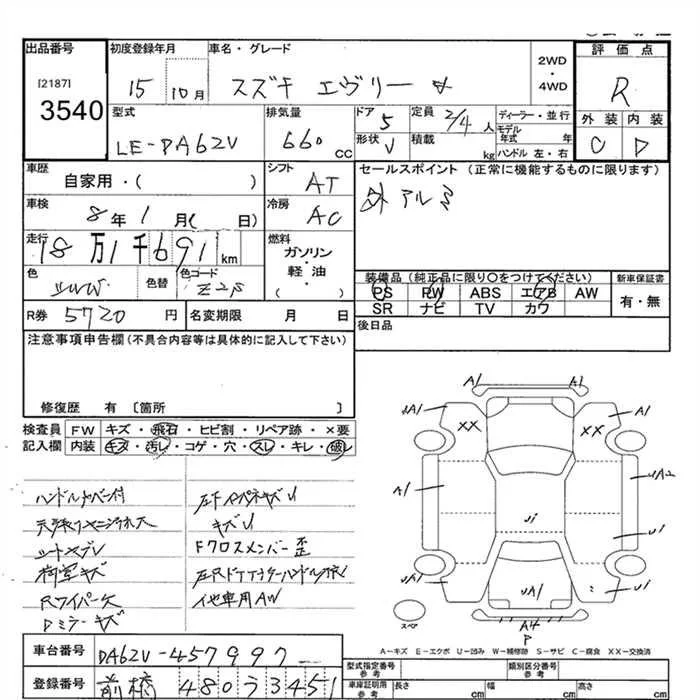 出品番号
初度登録年月
車名・グレード
2WD
・
4WD
評価点
[2187]
3540
15
10月
スズキ エヴリー
R
型式
排気量
ドア
定員
ディーラー・並行
外装
内装
LE-DA62V
660
cc
5
2/4人
モデル
年式
年
形状
V
積載
kg
ハンドル 左・右
C
D
車歴
シフト
セールスポイント(正常に機能するものに限ります)
自家用・( )
AT
外 アルミ
車検
冷房
8年1月( 日)
AC
走行
燃料
18万1千691km
ガソリン
・
軽油・
( )
色
色替
色コード
Z2S
装備品(純正品に限り○をつけてください)
新車保証書
PS
PW
ABS
エアB
AW
有・無
SR
ナビ
TV
カワ
R券
5720
円
名変期限
月
日
後日品
注意事項申告欄(不具合内容等は具体的に記入して下さい)
修復歴 有〔箇所 〕
検査員
記入欄
FW
キズ・飛石・ヒビ割・リペア跡・×要
内装
キズ・汚レ・コゲ・穴・スレ・キレ・破レ
ハンドルカバー付
天張リヤニ汚れ大
シートスレ
荷室キズ
Rワイパー欠
Dミラーキズ
キズU
Fクロスメンバー歪
左RドアアウターハンドルI
イ也車用AW
A1
A1
UA1
A1
XX
XX
A1
UA2
U1
U1
UA1
UA1
U1
スペア
A4
P
A-キズ E-エクボ U-凹み W-補修跡 S-サビ C-腐食 XX-交換済
車台番号
DA62V-457997
登録番号
前橋 480う3451
型式指定番号
参考
類別区分番号
参考
車庫証明用
参考
長さ
cm
幅
cm
高さ
cm